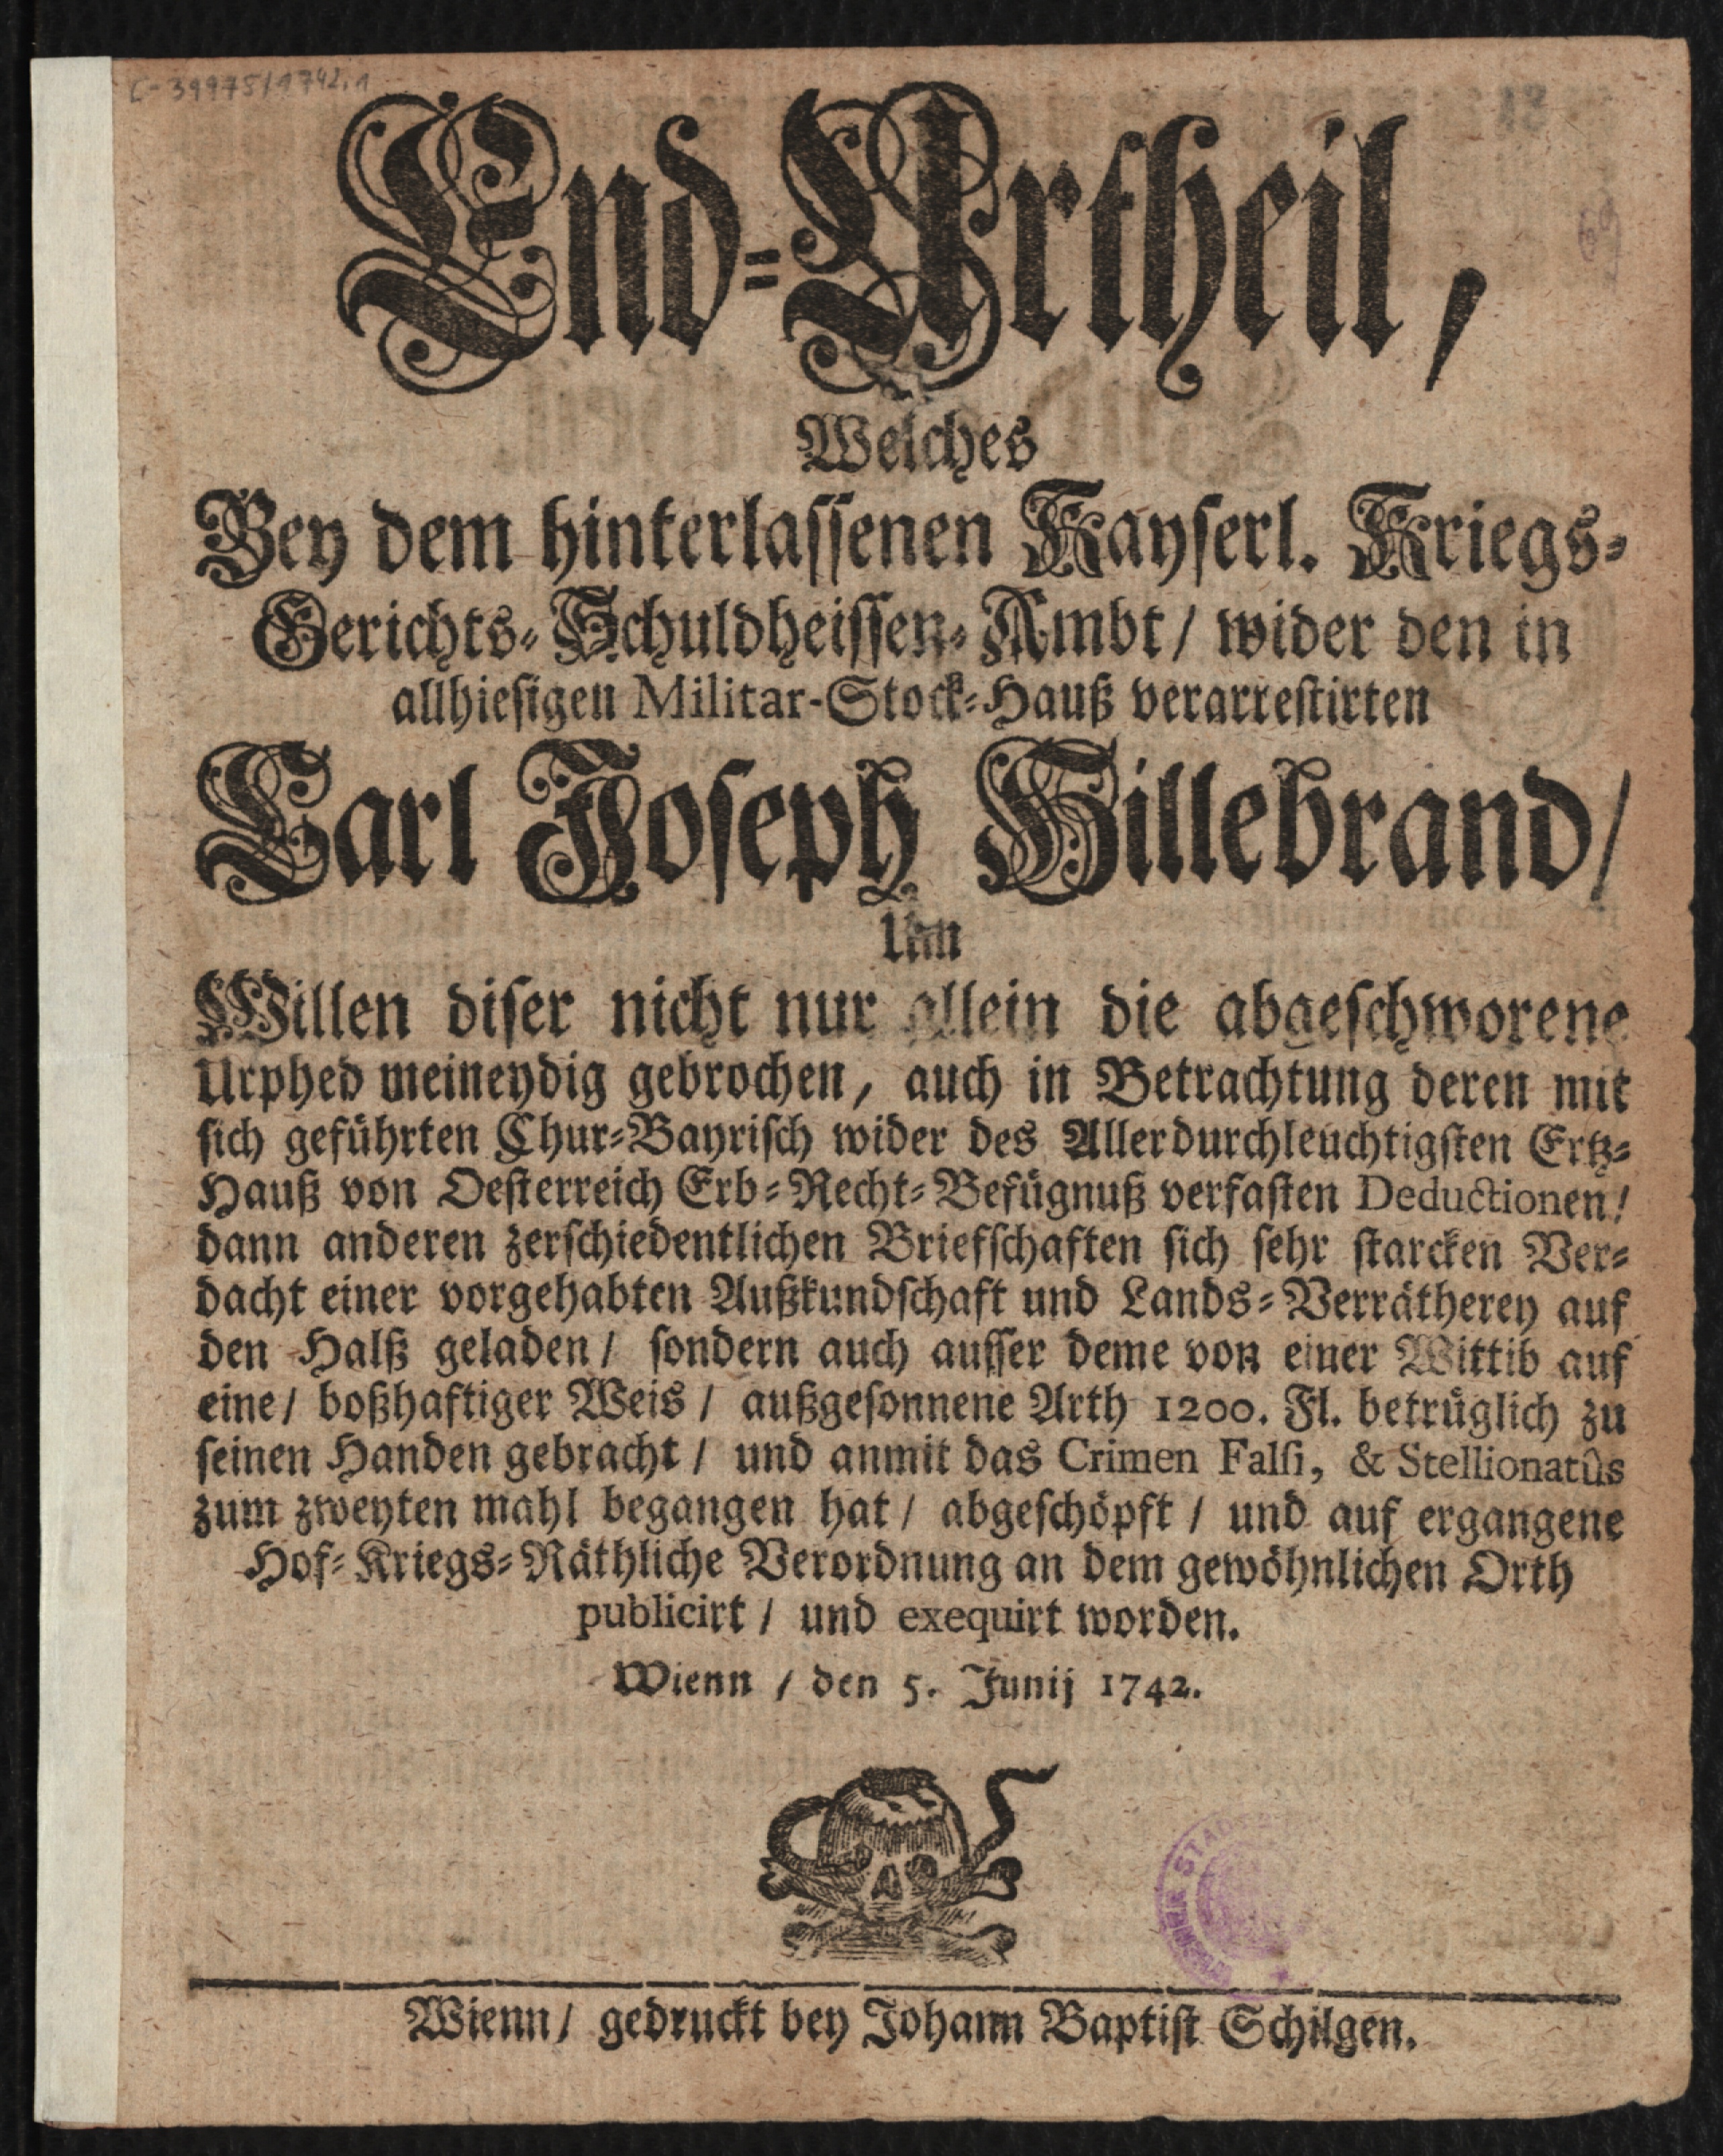 C-39975/1742,1
End-Urtheil,
Welches
Bey dem hinterlassenen Kayserl. Kriegs-
Gerichts-Schuldheissen-Ambt / wider den in
allhiesigen Militar-Stock-Hauß verarrestirten
Carl Joseph Hillebrand /
Um
Willen diser nicht nur allein die abgeschworene
Urphed meineydig gebrochen, auch in Betrachtung deren mit
sich geführten Chur-Bayrisch wider des Allerdurchleuchtigsten Ertz-
Hauß von Oesterreich Erb-Recht-Befügnuß verfasten Deductionen /
dann anderen zerschiedentlichen Briefschaften sich sehr starcken Ver-
dacht einer vorgehabten Außkundschaft und Lands-Verrätherey auf
den Halß geladen / sondern auch ausser deme von einer Wittib auf
eine / boßhaftiger Weis / außgesonnene Arth 1200. Fl. betrüglich zu
seinen Handen gebracht / und anmit das Crimen Falsi, & Stellionatûs
zum zweyten mahl begangen hat / abgeschöpft / und auf ergangene
Hof-Kriegs-Räthliche Verordnung an dem gewöhnlichen Orth
publicirt / und exequirt worden.
Wienn / den 5. Junij 1742.
Wienn / gedruckt bey Johann Baptist Schilgen.